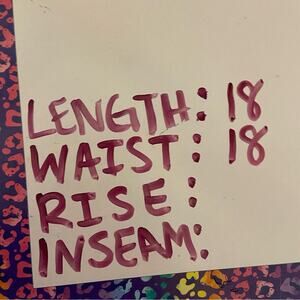 LENGTH: 18
WAIST: 18
RISE:
INSEAM: